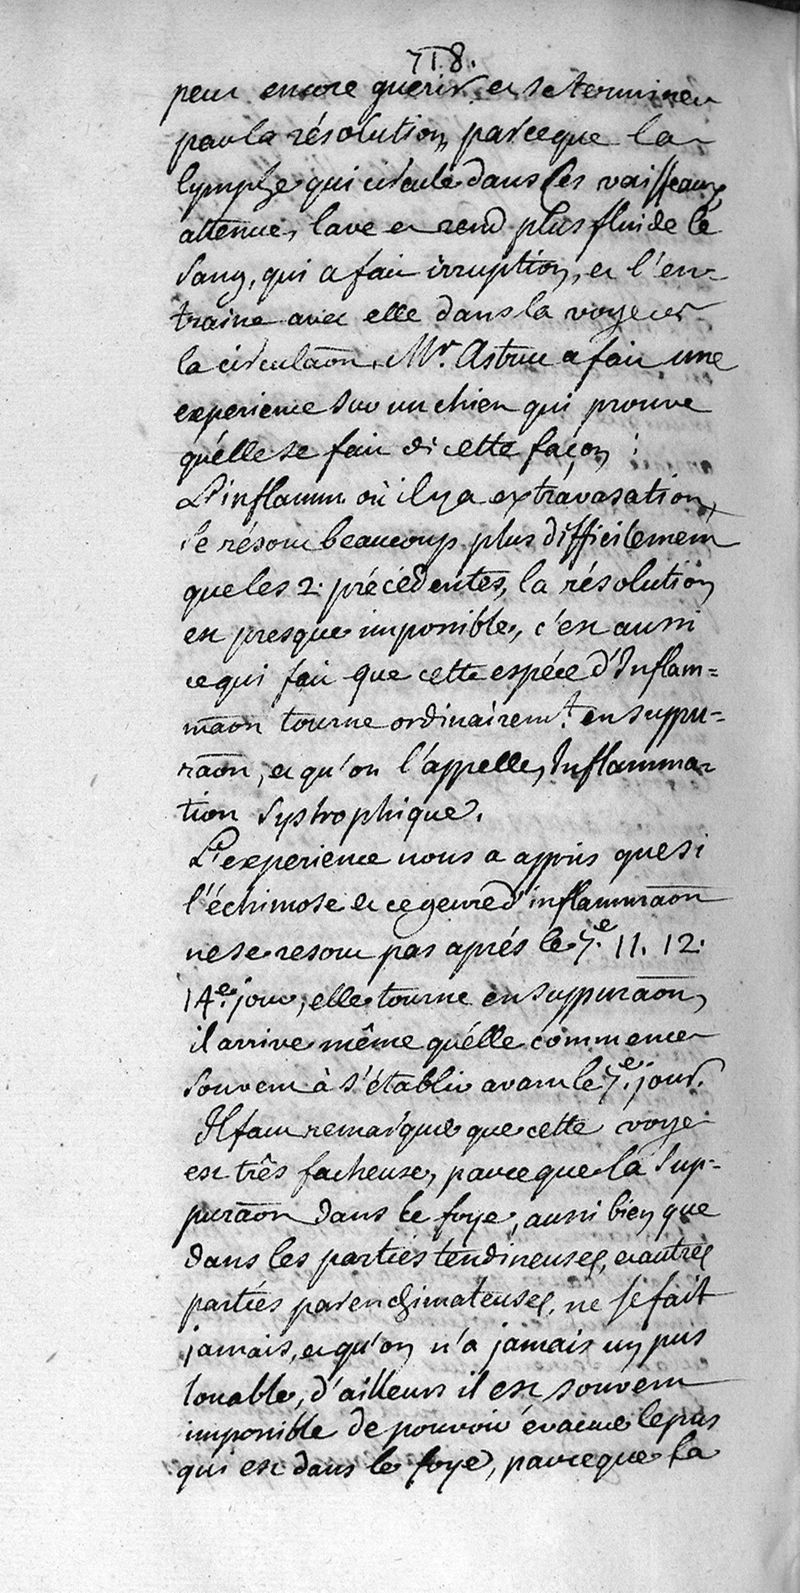 718.
peut encore guerir et se terminer
par la résolution, parceque la
lymphe qui circule dans ces vaisseaux,
attenue, lave et rend plus fluide le
sang, qui a fait irruption, et l'en-
traine avec elle dans la voye de
la circulaōn. Mr. Astruc a fait une
experience sur un chien qui prouve
qu'elle se fait de cette façon :
L'inflamm. où il y a extravasation,
se résout beaucoup plus difficilement
que les 2. précédentes, la résolution
est presque impossible, c'est aussi
ce qui fait que cette espéce d'Inflam=
maōn tourne ordinairemt. en suppu=
raōn, et qu'on l'appelle, Inflamma-
tion systrophique.
L'experience nous a appris que si
l'échimose et ce genre d'inflammaōn
ne se resout pas aprés le 7.e 11. 12.
14.e jour, elle tourne en suppuraōn,
il arrive même qu'elle commence
souvent à s'établir avant le 7.e jour.
Il faut remarquer que cette voye
est très facheuse, parceque la sup-
puraōn dans le foye, aussi bien que
dans les parties tendineuses, et autres
parties parenchimateuses, ne se fait
jamais, et qu'on n'a jamais un pus
louable, d'ailleurs il est souvent
impossible de pouvoir évacuer le pus
qui est dans le foye, parceque la